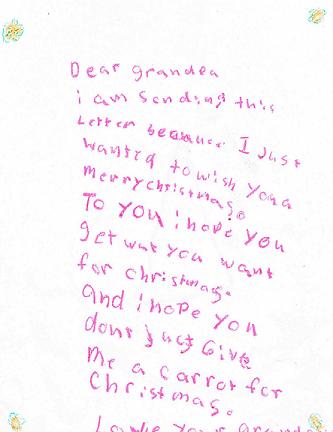 Dear grandea
i am sending this
Letter because I Just
wanted to wish you a
merrychristmas.
To you i hope you
get wut you want
for christmas.
and i hope you
dont just Give
Me a carrot for
Christmas.
your